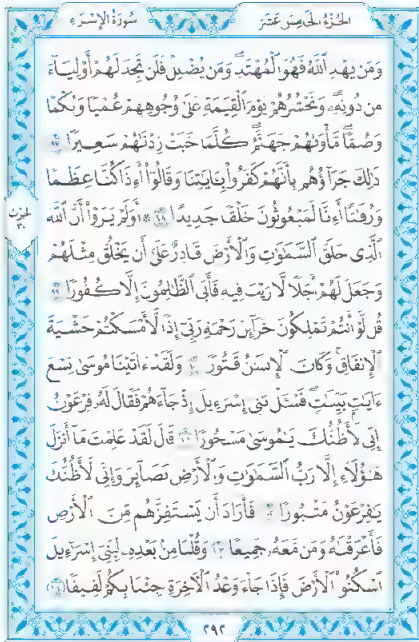 الجزء الخامس عشر
سورة الإسراء
وَمَن يَهْدِ ٱللَّهُ فَهُوَ ٱلْمُهْتَدِ ۖ وَمَن يُضْلِلْ فَلَن تَجِدَ لَهُمْ أَوْلِيَآءَ
مِن دُونِهِۦ ۖ وَنَحْشُرُهُمْ يَوْمَ ٱلْقِيَٰمَةِ عَلَىٰ وُجُوهِهِمْ عُمْيًا وَبُكْمًا
وَصُمًّا ۖ مَّأْوَىٰهُمْ جَهَنَّمُ ۖ كُلَّمَا خَبَتْ زِدْنَٰهُمْ سَعِيرًا ٩٧
ذَٰلِكَ جَزَآؤُهُم بِأَنَّهُمْ كَفَرُوا۟ بِـَٔايَٰتِنَا وَقَالُوٓا۟ أَءِذَا كُنَّا عِظَٰمًا
وَرُفَٰتًا أَءِنَّا لَمَبْعُوثُونَ خَلْقًا جَدِيدًا ٩٨ ۞ أَوَلَمْ يَرَوْا۟ أَنَّ ٱللَّهَ
ٱلَّذِى خَلَقَ ٱلسَّمَٰوَٰتِ وَٱلْأَرْضَ قَادِرٌ عَلَىٰٓ أَن يَخْلُقَ مِثْلَهُمْ
وَجَعَلَ لَهُمْ أَجَلًا لَّا رَيْبَ فِيهِ فَأَبَى ٱلظَّٰلِمُونَ إِلَّا كُفُورًا ٩٩
قُل لَّوْ أَنتُمْ تَمْلِكُونَ خَزَآئِنَ رَحْمَةِ رَبِّىٓ إِذًا لَّأَمْسَكْتُمْ خَشْيَةَ
ٱلْإِنفَاقِ ۚ وَكَانَ ٱلْإِنسَٰنُ قَتُورًا ١٠٠ وَلَقَدْ ءَاتَيْنَا مُوسَىٰ تِسْعَ
ءَايَٰتٍۭ بَيِّنَٰتٍ ۖ فَسْـَٔلْ بَنِىٓ إِسْرَٰٓءِيلَ إِذْ جَآءَهُمْ فَقَالَ لَهُۥ فِرْعَوْنُ
إِنِّى لَأَظُنُّكَ يَٰمُوسَىٰ مَسْحُورًا ١٠١ قَالَ لَقَدْ عَلِمْتَ مَآ أَنزَلَ
هَٰٓؤُلَآءِ إِلَّا رَبُّ ٱلسَّمَٰوَٰتِ وَٱلْأَرْضِ بَصَآئِرَ وَإِنِّى لَأَظُنُّكَ
يَٰفِرْعَوْنُ مَثْبُورًا ١٠٢ فَأَرَادَ أَن يَسْتَفِزَّهُم مِّنَ ٱلْأَرْضِ
فَأَغْرَقْنَٰهُ وَمَن مَّعَهُۥ جَمِيعًا ١٠٣ وَقُلْنَا مِنۢ بَعْدِهِۦ لِبَنِىٓ إِسْرَٰٓءِيلَ
ٱسْكُنُوا۟ ٱلْأَرْضَ فَإِذَا جَآءَ وَعْدُ ٱلْـَٔاخِرَةِ جِئْنَا بِكُمْ لَفِيفًا ١٠٤
الحزب
٣٠
٢٩٢